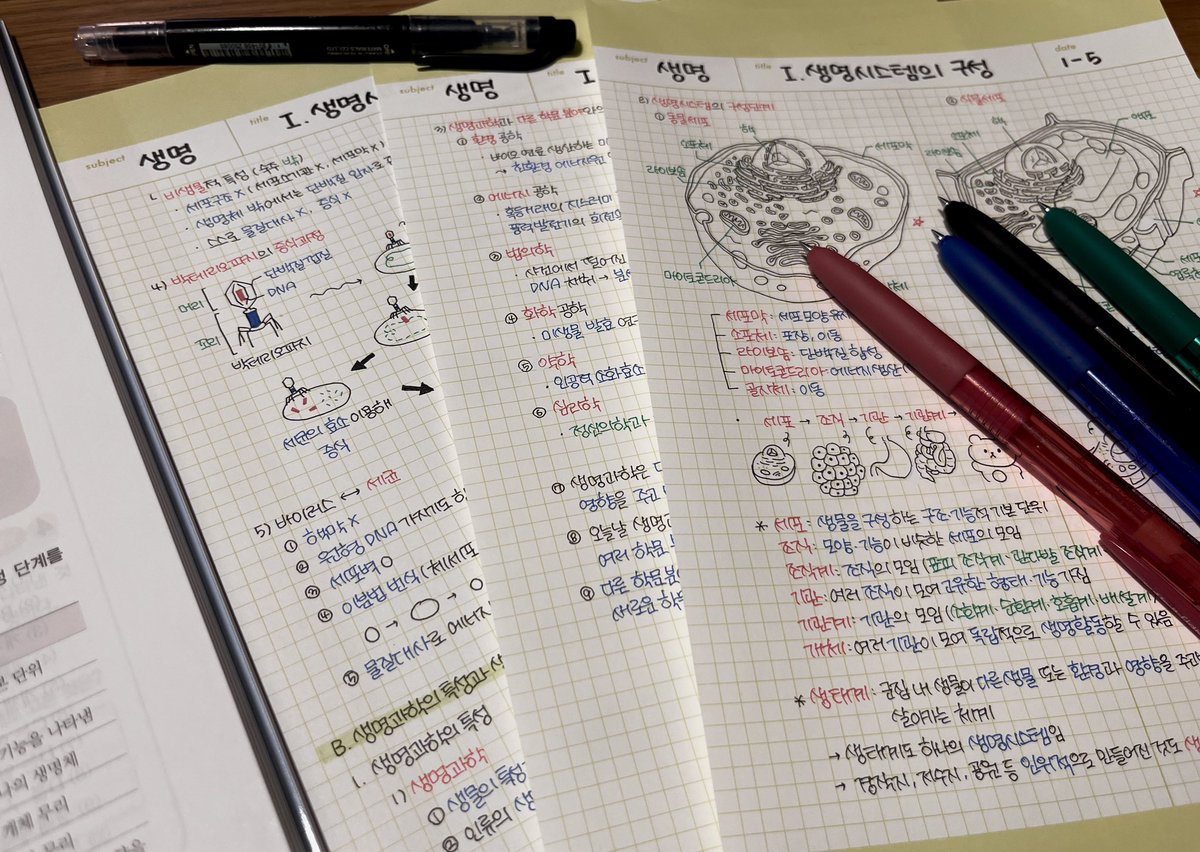 subject 생명
title I. 생명시
1. 비생물적 특성 (숙주 밖)
· 세포구조 X (세포소기관 X, 세포막 X)
· 생명체 밖에서는 단백질 입자로
· 스스로 물질대사 X, 증식 X
4) 박테리오파지의 증식과정
머리
꼬리
단백질 껍질
DNA
박테리오파지
세균의 효소 이용해
증식
5) 바이러스 ↔ 세균
① 핵막 X
② 유전형 DNA 가지기도
③ 세포벽 O
④ 이분법 번식 (체세포
⑤ 물질대사로 에너지
B. 생명과학의 특성과
1. 생명과학의 특성
1) 생명과학
① 생물의 특성
② 인류의 생
subject 생명
title I
3) 생명과학과 다른 학문 분야와의
① 환경 공학
· 바이오 연료 생산하는 미
→ 친환경 에너지원
② 에너지 공학
· 혹등고래의 지느러미
풍력발전기의 회전
③ 법의학
· 사건에서 떨어진
DNA 채취 → 분석
④ 화학 공학
· 미생물 발효 연구
⑤ 약학
· 인공적 소화효소
⑥ 심리학
· 정신의학과
⑦ 생명과학은 다
영향을 주고
⑧ 오늘날 생명
여러 학문
⑨ 다른 학문분
새로운 학
subject 생명
title I. 생명시스템의 구성
date 1-5
2) 생명시스템의 구성단계
① 동물세포
② 식물세포
소포체
핵
세포막
라이보솜
마이토콘드리아
소포체
핵
엽록체
라이보솜
세포막 : 세포 모양 유지
소포체 : 포장, 이동
라이보솜 : 단백질 합성
마이토콘드리아 : 에너지 생산
골지체 : 이동
· 세포 → 조직 → 기관 → 기관계 →
* 세포 : 생물을 구성하는 구조·기능적 기본 단위
조직 : 모양·기능이 비슷한 세포의 모임
조직계 : 조직의 모임 (표피 조직계·관다발 조직계
기관 : 여러 조직이 모여 고유한 형태·기능 가짐
기관계 : 기관의 모임 (소화계·순환계·호흡계·배설계
개체 : 여러 기관이 모여 독립적으로 생명활동할 수 있음
* 생태계 : 군집 내 생물이 다른 생물 또는 환경과 영향을 주고
살아가는 체계
→ 생태계도 하나의 생명시스템임
→ 경작지, 저수지, 공원 등 인위적으로 만들어진 것도 생
단계를
단위
기능을 나타냄
나의 생명체
개체 무리
무리